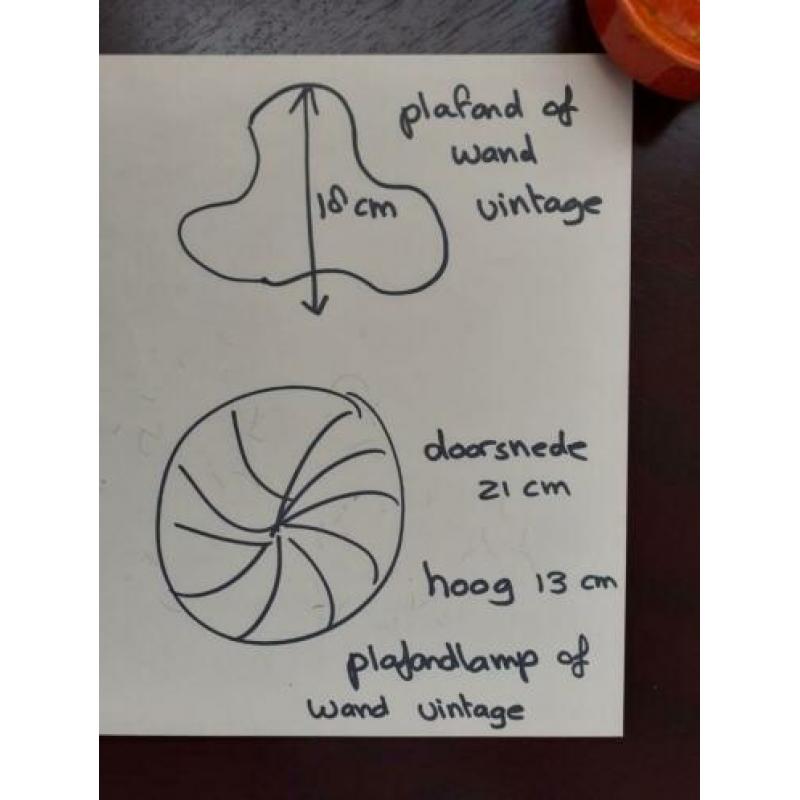 plafond of
wand
vintage
18 cm
doorsnede
21 cm
hoog 13 cm
plafondlamp of
wand vintage